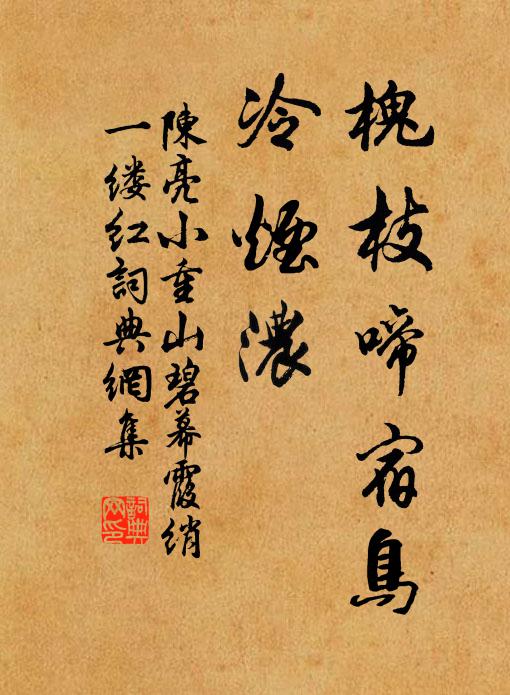 槐枝啼宿鳥
冷煙濃
陳亮小重山碧幕霞綃
一缕红詞典網集
詞典
网印